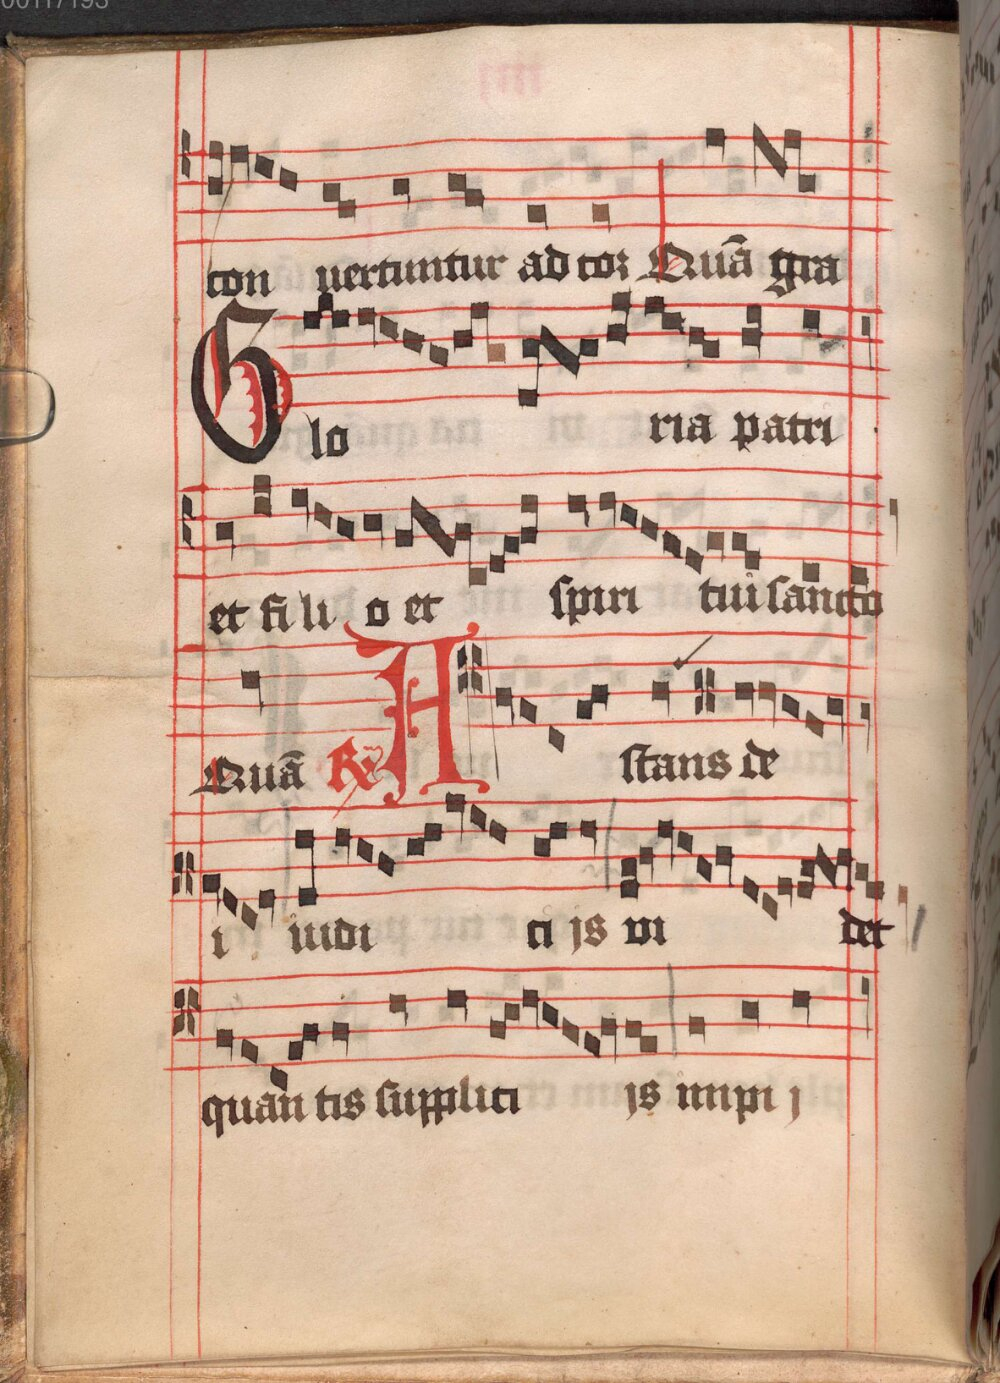 00117193
con uertuntur ad cor Quā gra
Glo ria patri
et fi li o et spiri tui sancto
Quā R̃ Astans de
i iudi ci js vi det
quan tis supplici js impi j